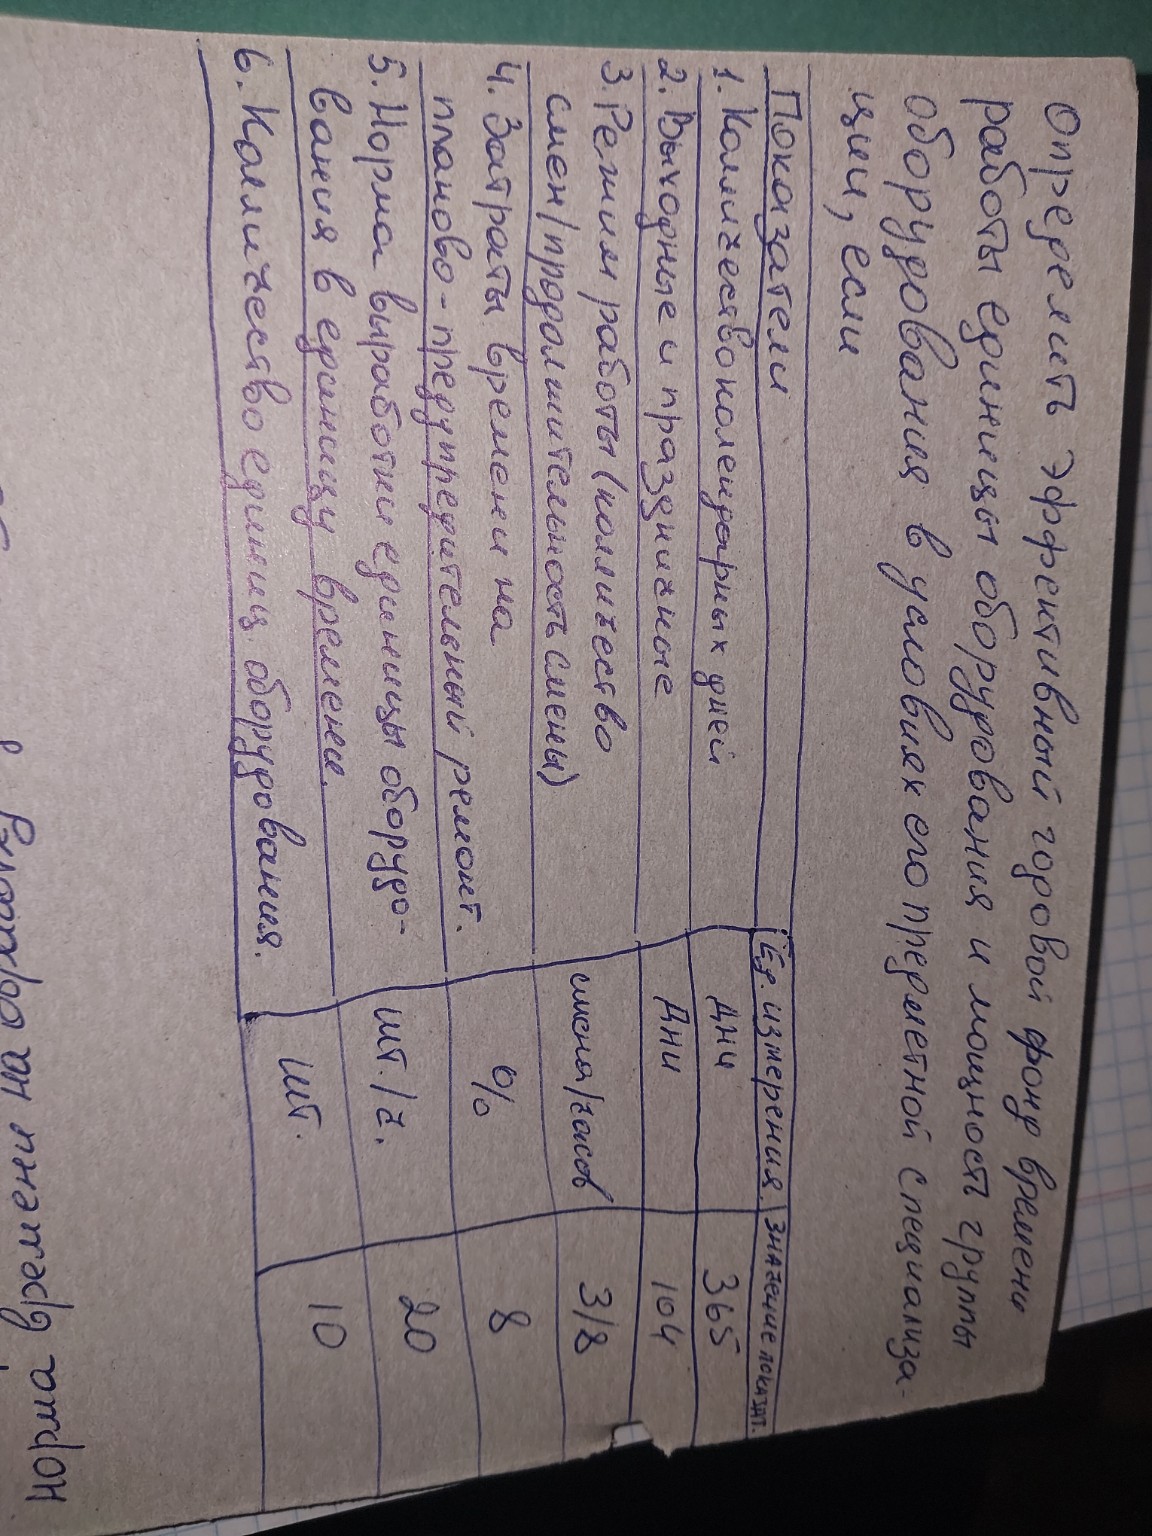 Определить эффективный годовой фонд времени
работы единицы оборудования и мощность группы
оборудования в условиях его предметной специализа-
ции, если
Показатели Ед. измерения. Значение показат.
1. Колличество календарных дней дни 365
2. Выходные и праздничные дни 104
3. Режим работы (количество
смен/продолжительность смены) смена/часов 3/8
4. Затраты времени на
планово-предупредительный ремонт. % 8
5. Норма выработки единицы оборудо-
вания в единицу времени. шт./ч. 20
6. Колличество единиц оборудования. шт. 10
норма времени на обработку